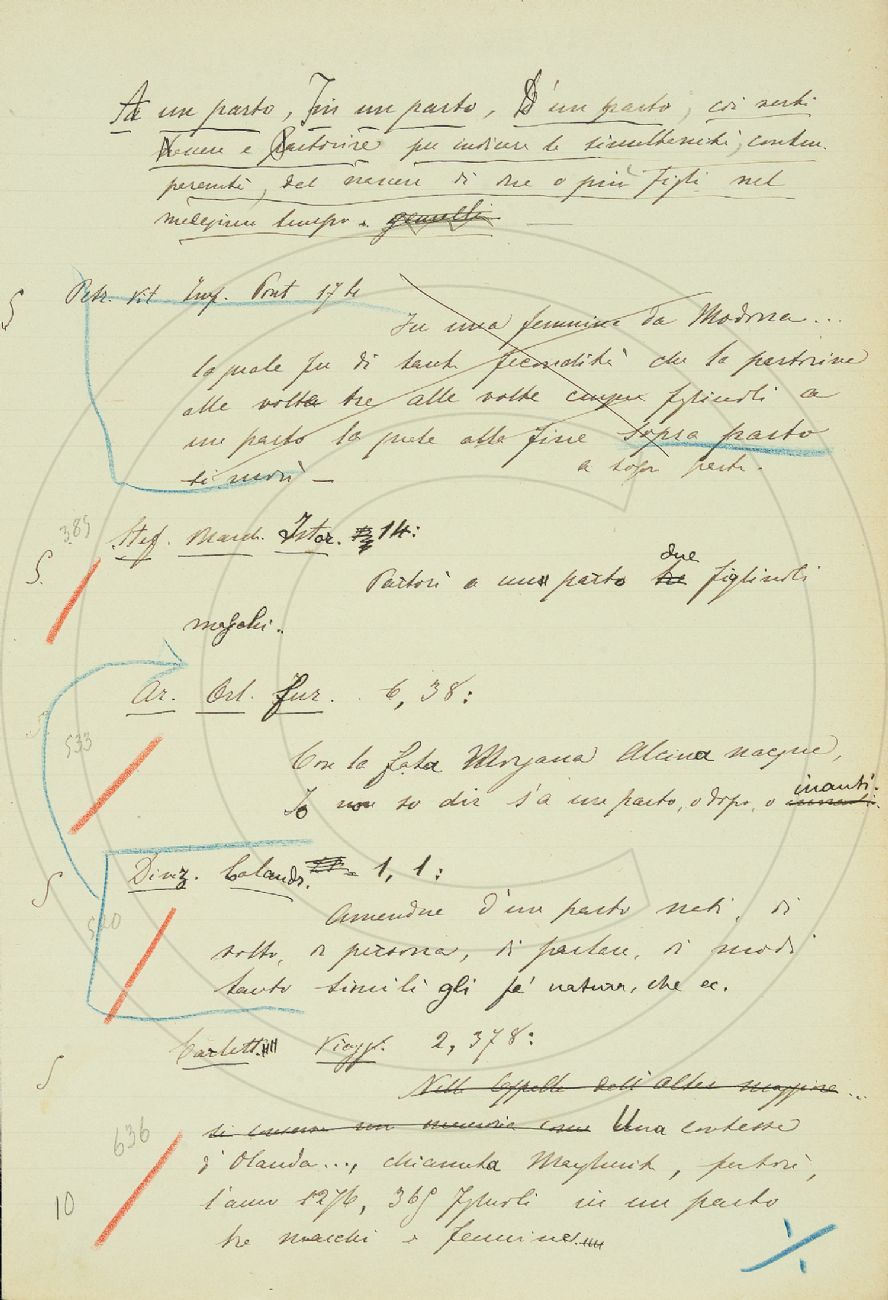 A un parto, In un parto, D'un parto, coi verbi
Nascere e Partorire per indicare la simultaneità, contem-
poraneità, del nascere di due o più figli nel
medesimo tempo. gemelli
S
Petr. Vit. Imp. Pont 174
In una femmina da Modona...
la quale fu di tanta fecondità che la partoriva
alle volte tre alle volte cinque figliuoli a
un parto la quale alla fine sopra parto
si morì —
a sopr parto.
385
S.
Stef. March. Istor. 14:
Partorì a un parto tre due figliuoli
maschi.
Ar. Orl. Fur. 6, 38:
533
Con la fata Morgana Alcina nacque,
Io non so dir s'a un parto, o dopo, o innanti inanti.
S
Diviz. Caland. 1, 1:
520
Amendue d'un parto nati, di
volto, di persona, di parlare, di modi
tanto simili gli fe' natura, che ec.
S
Carlett. Viagg. 2, 378:
Nella Cappella dell'altar maggiore...
si conserva una memoria come Una contessa
d'Olanda..., chiamata Margherita, partorì,
636
l'anno 1276, 365 figliuoli in un parto
10
tra maschi e femmine.